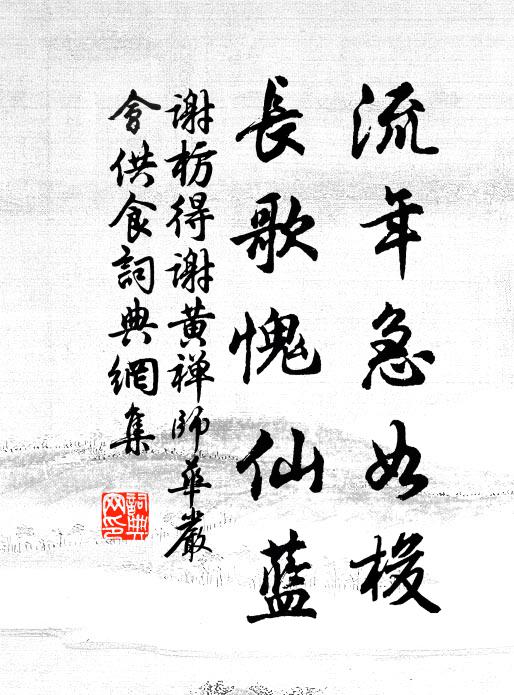 流年急如梭
長歌愧仙藍
謝枋得謝黄禅師華嚴
會供食詞典網集
詞典网印